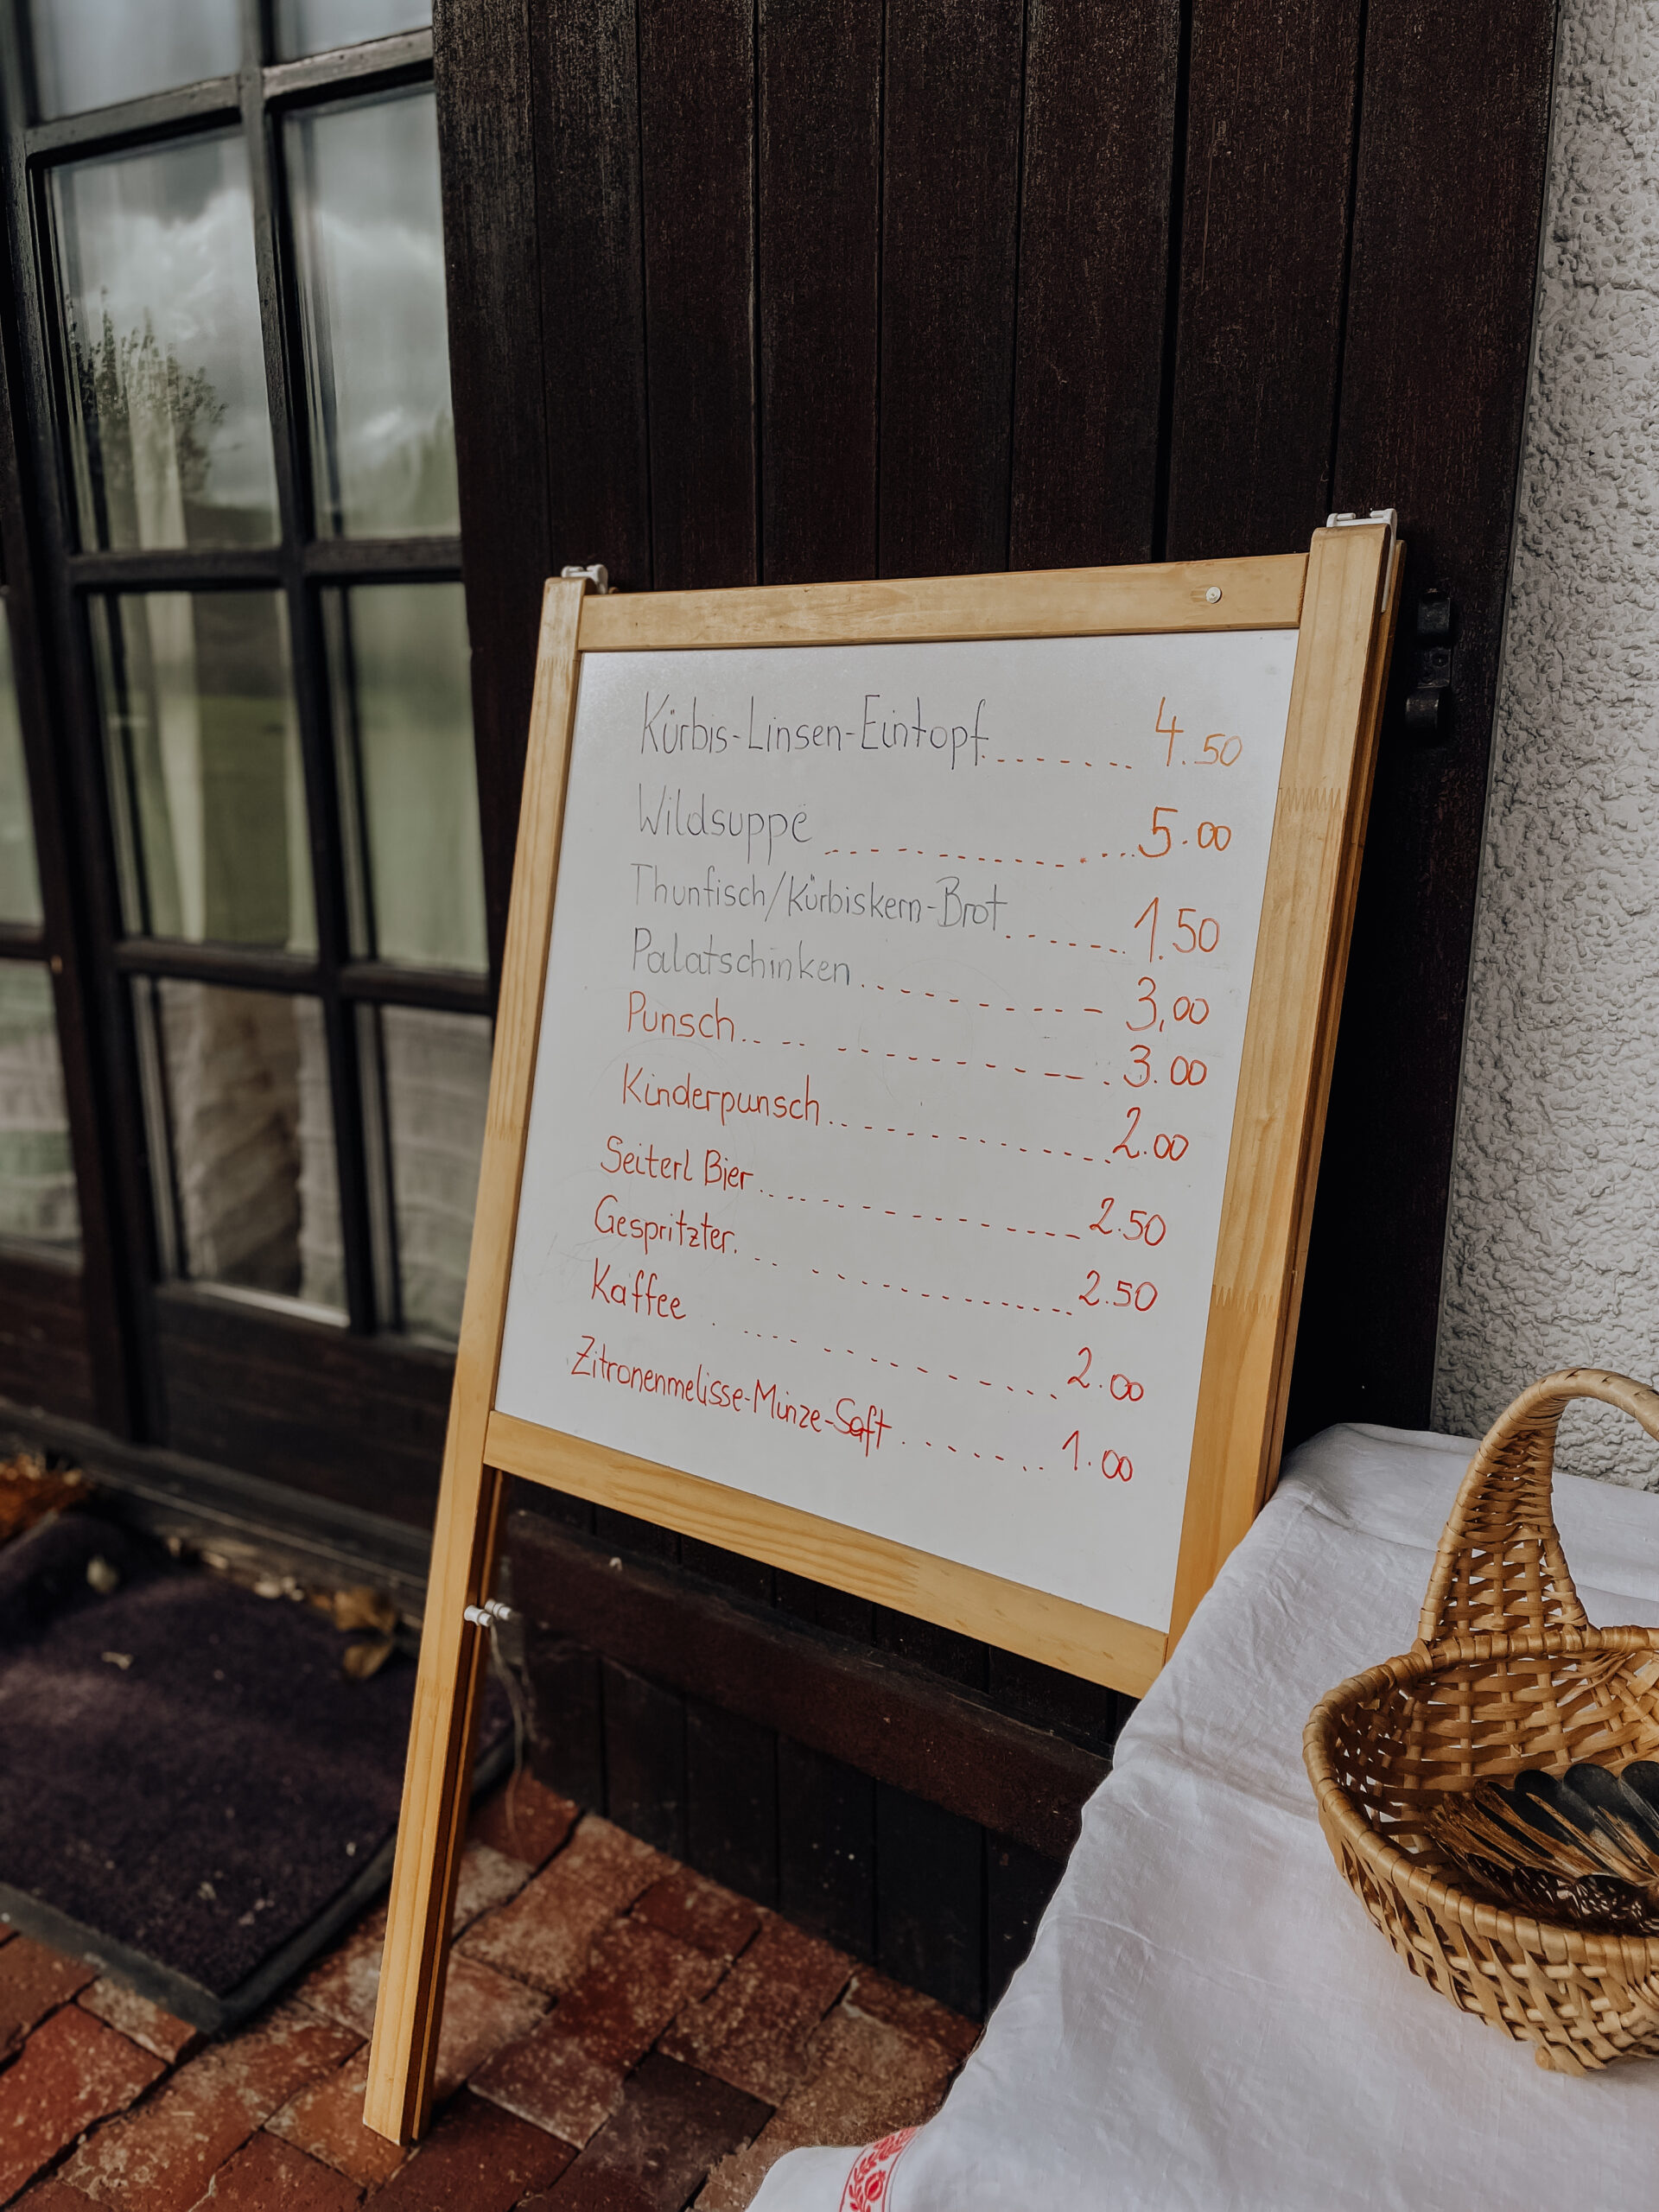 Kürbis-Linsen-Eintopf........ 4.50
Wildsuppe ............... 5.00
Thunfisch/Kürbiskern-Brot....... 1.50
Palatschinken........... 3,00
Punsch............... 3.00
Kinderpunsch............. 2.00
Seiterl Bier............... 2.50
Gespritzter............... 2.50
Kaffee ............... 2.00
Zitronenmelisse-Minze-Saft ....... 1.00